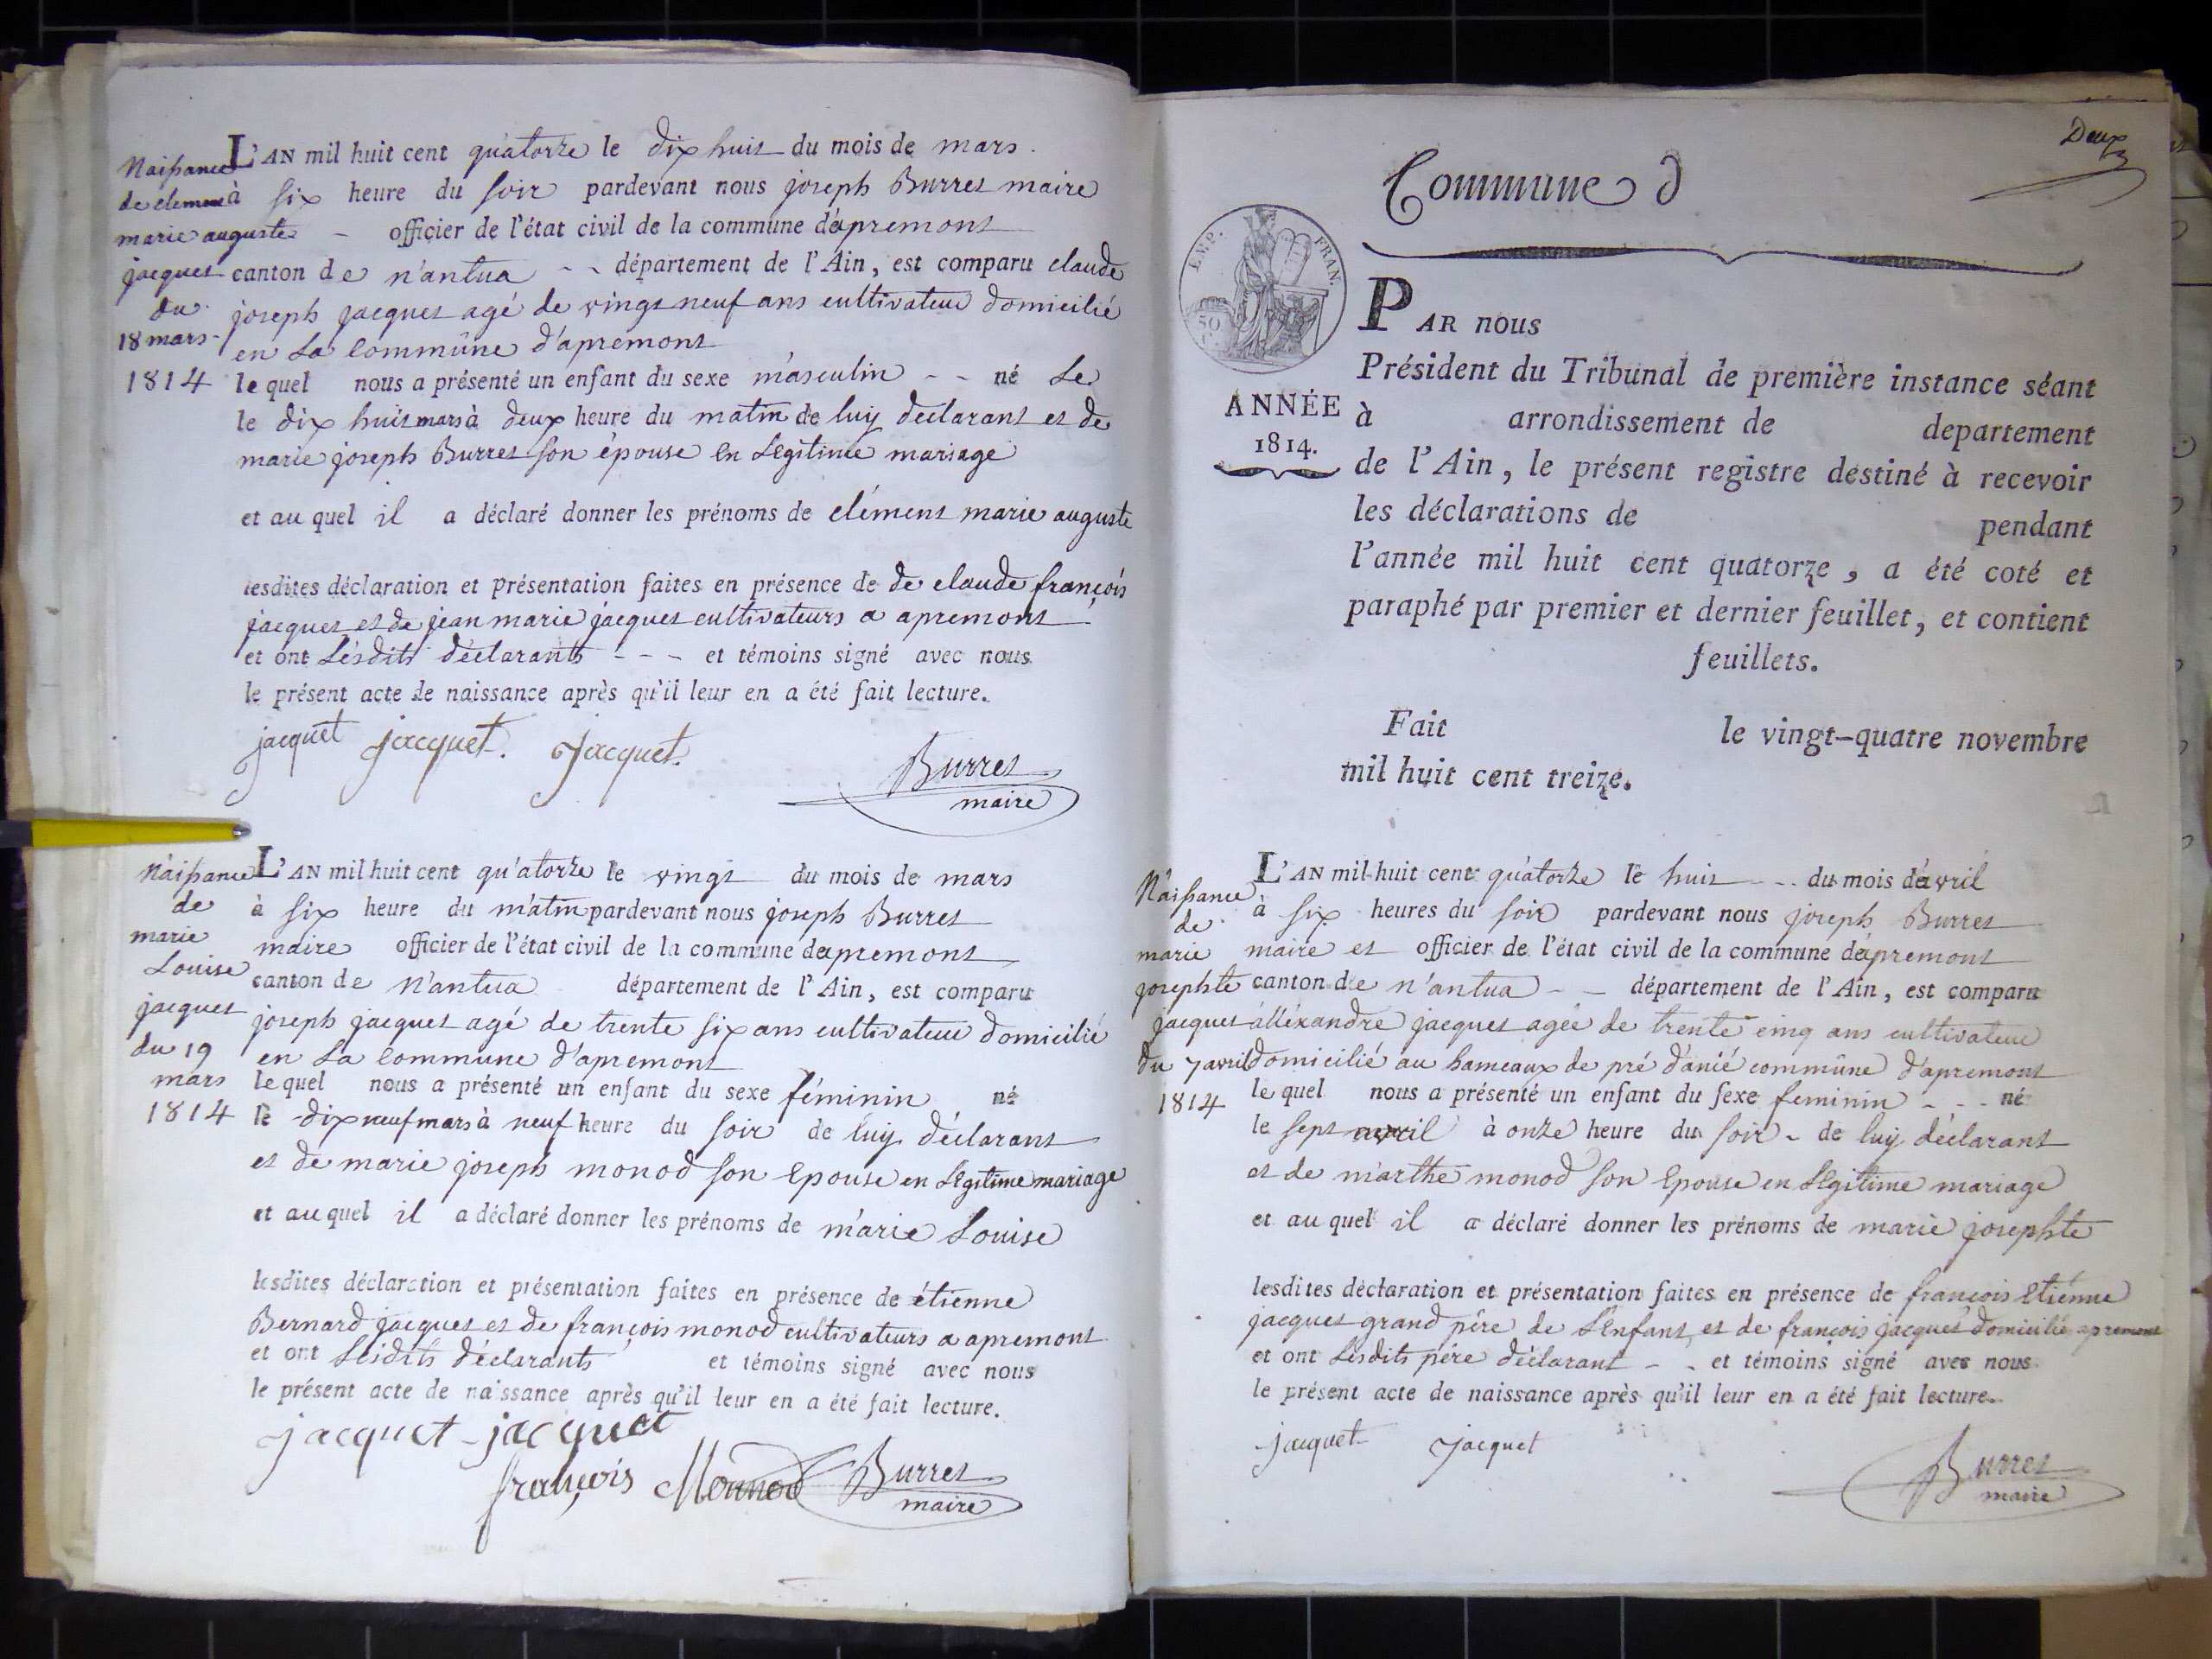 Naissance
de clement
marie auguste
jacquet
du
18 mars
1814
L'AN mil huit cent quatorze le dix huit du mois de mars
à six heure du soir pardevant nous joseph Burret maire
officier de l'état civil de la commune d'apremont
canton de nantua département de l'Ain, est comparu claude
joseph jacquet agé de vingt neuf ans cultivateur domicilié
en la commune d'apremont
lequel nous a présenté un enfant du sexe masculin né le
le dix huit mars à deux heure du matin de luy declarant et de
marie joseph Burret son épouse en Légitime mariage
et auquel il a déclaré donner les prénoms de clément marie auguste
lesdites déclaration et présentation faites en présence de de claude françois
jacquet et de jean marie jacquet cultivateurs a apremont
et ont Lesdits déclarants - - - et témoins signé avec nous
le présent acte de naissance après qu'il leur en a été fait lecture.
jacquet jacquet. Jacquet.
Burret
maire
Naissance
de
marie
Louise
jacquet
du 19
mars
1814
L'AN mil huit cent quatorze le vingt du mois de mars
à six heure du matin pardevant nous joseph Burret
maire officier de l'état civil de la commune dapremont
canton de Nantua département de l'Ain, est comparu
joseph jacquet agé de trente six ans cultivateur domicilié
en La commune d'apremont
lequel nous a présenté un enfant du sexe féminin né
le dix neuf mars à neuf heure du soir de luy déclarant
et de marie joseph monod son Epouse en Légitime mariage
et auquel il a déclaré donner les prénoms de marie Louise
lesdites déclaration et présentation faites en présence de étienne
Bernard jacquet et de françois monod cultivateurs a apremont
et ont Lesdits déclarants et témoins signé avec nous
le présent acte de naissance après qu'il leur en a été fait lecture.
jacquet - jacquet
françois Monnod
Burret
maire
Deux
Commune d
EMP. FRAN.
50
ANNÉE
1814.
PAR nous
Président du Tribunal de première instance séant
à arrondissement de departement
de l'Ain, le présent registre destiné à recevoir
les déclarations de pendant
l'année mil huit cent quatorze, a été coté et
paraphé par premier et dernier feuillet, et contient
feuillets.
Fait le vingt-quatre novembre
mil huit cent treize.
Naissance
de
marie
josephte
jacquet
du 7 avril
1814
L'AN mil-huit cent quatorze le huit - - du mois d'avril
à six heures du soir pardevant nous joseph Burret
maire et officier de l'état civil de la commune d'apremont
canton de n'antua - - département de l'Ain, est comparu
alléxandre jacquet agée de trente cinq ans cultivateur
domicilié au hameaux de pré d'anié commune d'apremont
lequel nous a présenté un enfant du sexe feminin - - - né
le sept avril à onze heure du soir - de luy déclarant
et de marthe monod son Epouse en Légitime mariage
et auquel il a déclaré donner les prénoms de marie josephte
lesdites déclaration et présentation faites en présence de françois Etienne
jacquet grand père de L'Enfant, et de françois jacquet domicilié apremont
et ont Lesdits père déclarant - - et témoins signé avec nous
le présent acte de naissance après qu'il leur en a été fait lecture.
jacquet Jacquet
Burret
maire